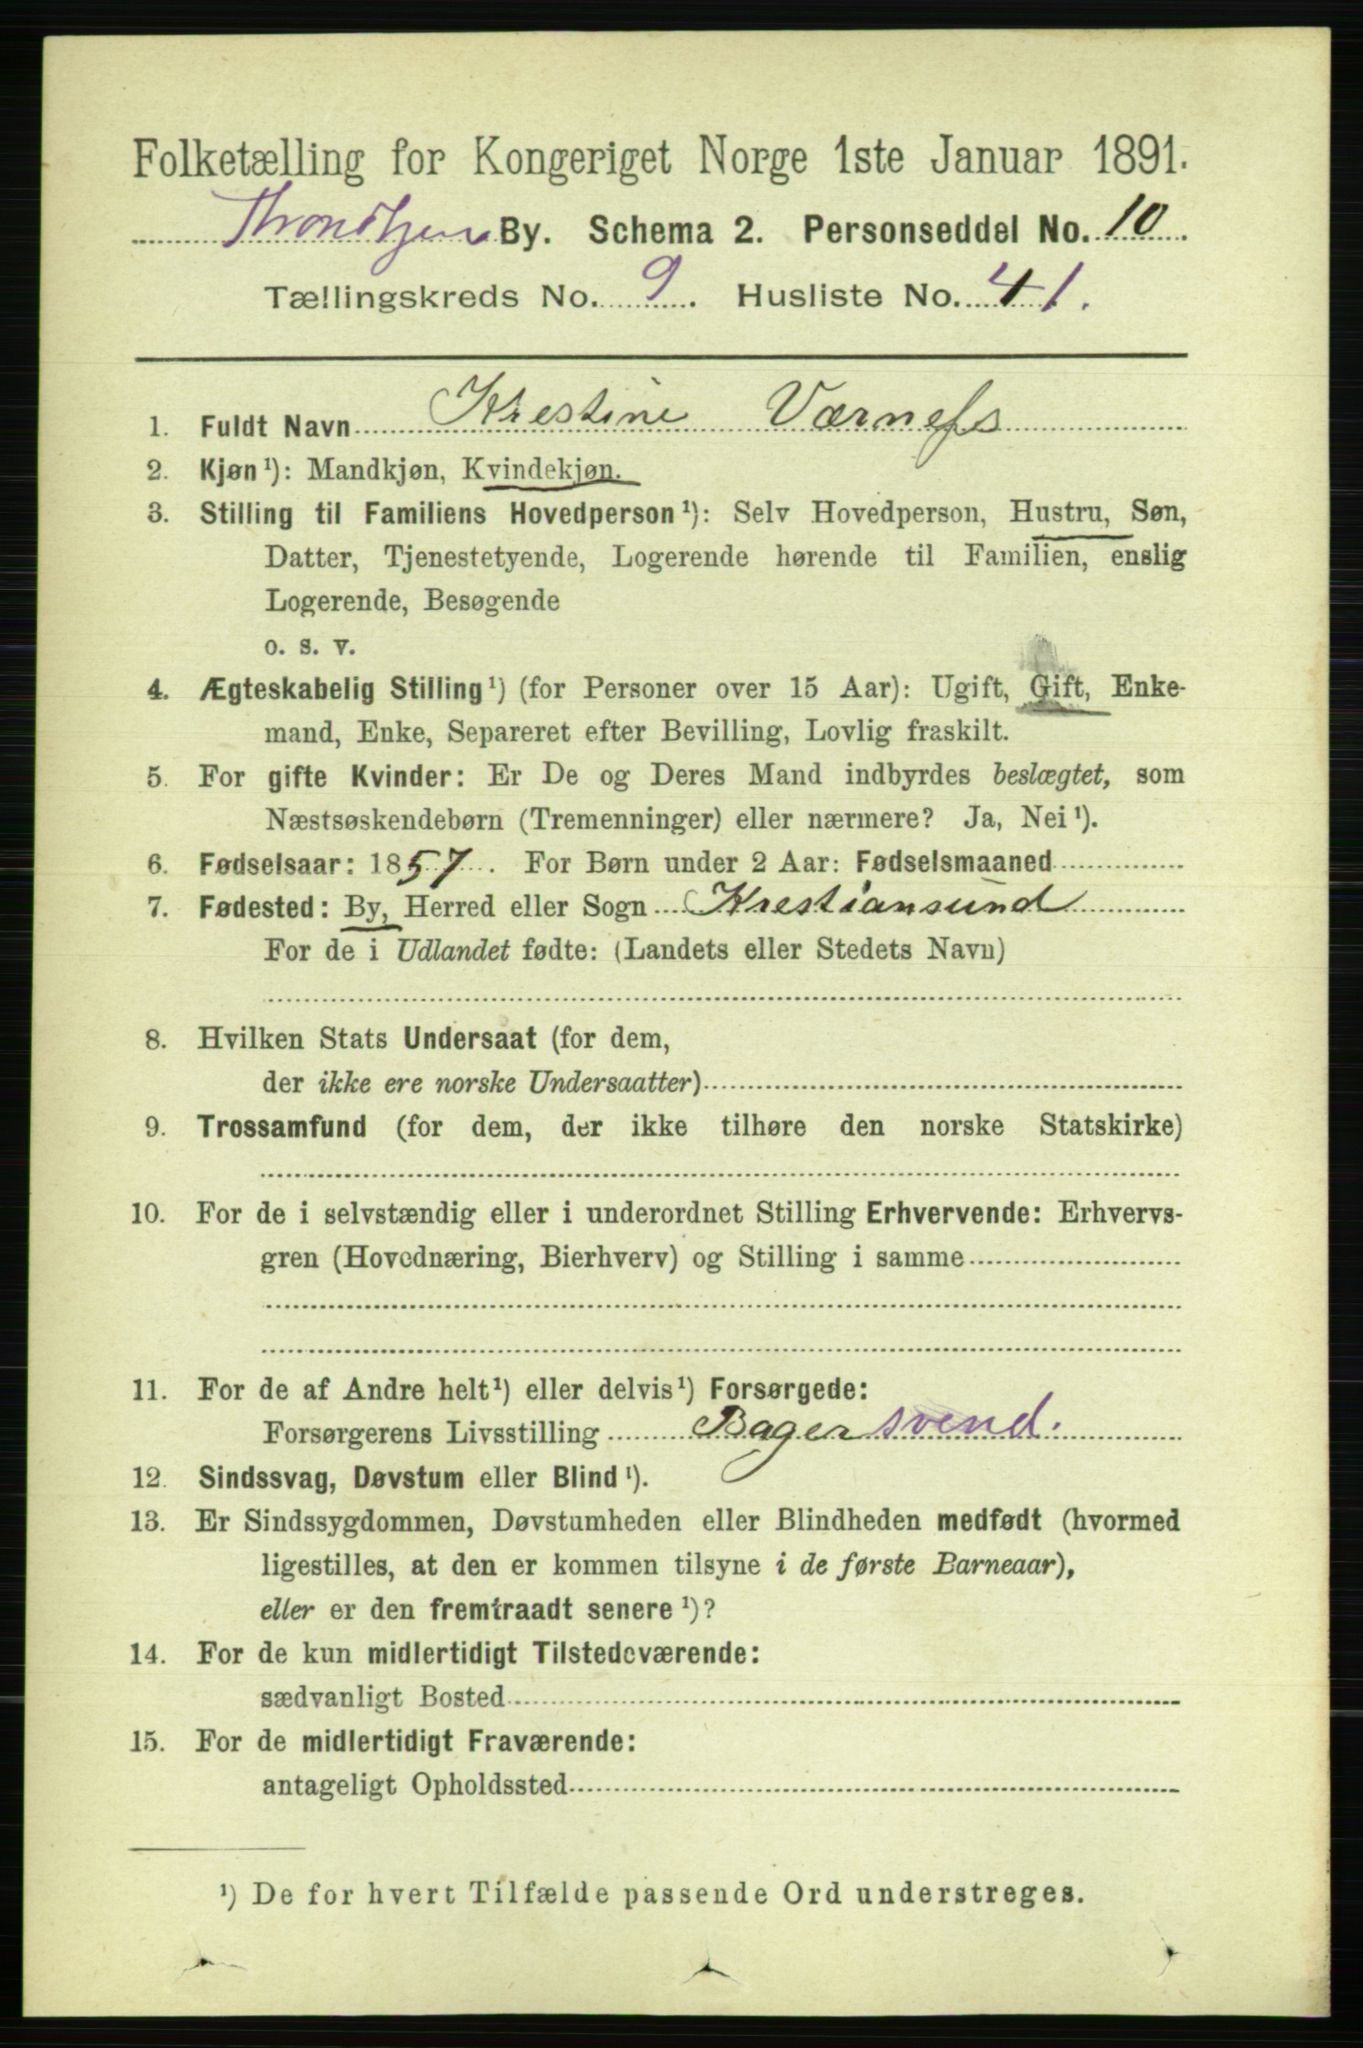 Folketælling for Kongeriget Norge 1ste Januar 1891.
Throndhjem By. Schema 2. Personseddel No. 10.
Tællingskreds No. 9. Husliste No. 41.
1. Fuldt Navn Krestine Værness
2. Kjøn¹): Mandkjøn, Kvindekjøn.
3. Stilling til Familiens Hovedperson¹): Selv Hovedperson, Hustru, Søn,
Datter, Tjenestetyende, Logerende hørende til Familien, enslig
Logerende, Besøgende
o. s. v.
4. Ægteskabelig Stilling¹) (for Personer over 15 Aar): Ugift, Gift, Enke-
mand, Enke, Separeret efter Bevilling, Lovlig fraskilt.
5. For gifte Kvinder: Er De og Deres Mand indbyrdes beslægtet, som
Næstsøskendebørn (Tremenninger) eller nærmere? Ja, Nei¹).
6. Fødselsaar: 1857. For Børn under 2 Aar: Fødselsmaaned
7. Fødested: By, Herred eller Sogn Krestiansund
For de i Udlandet fødte: (Landets eller Stedets Navn)
8. Hvilken Stats Undersaat (for dem,
der ikke ere norske Undersaatter)
9. Trossamfund (for dem, der ikke tilhøre den norske Statskirke)
10. For de i selvstændig eller i underordnet Stilling Erhvervende: Erhvervs-
gren (Hovednæring, Bierhverv) og Stilling i samme
11. For de af Andre helt¹) eller delvis¹) Forsørgede:
Forsørgerens Livsstilling Bagersvend.
12. Sindssvag, Døvstum eller Blind¹).
13. Er Sindssygdommen, Døvstumheden eller Blindheden medfødt (hvormed
ligestilles, at den er kommen tilsyne i de første Barneaar),
eller er den fremtraadt senere¹)?
14. For de kun midlertidigt Tilstedeværende:
sædvanligt Bosted
15. For de midlertidigt Fraværende:
antageligt Opholdssted
¹) De for hvert Tilfælde passende Ord understreges.